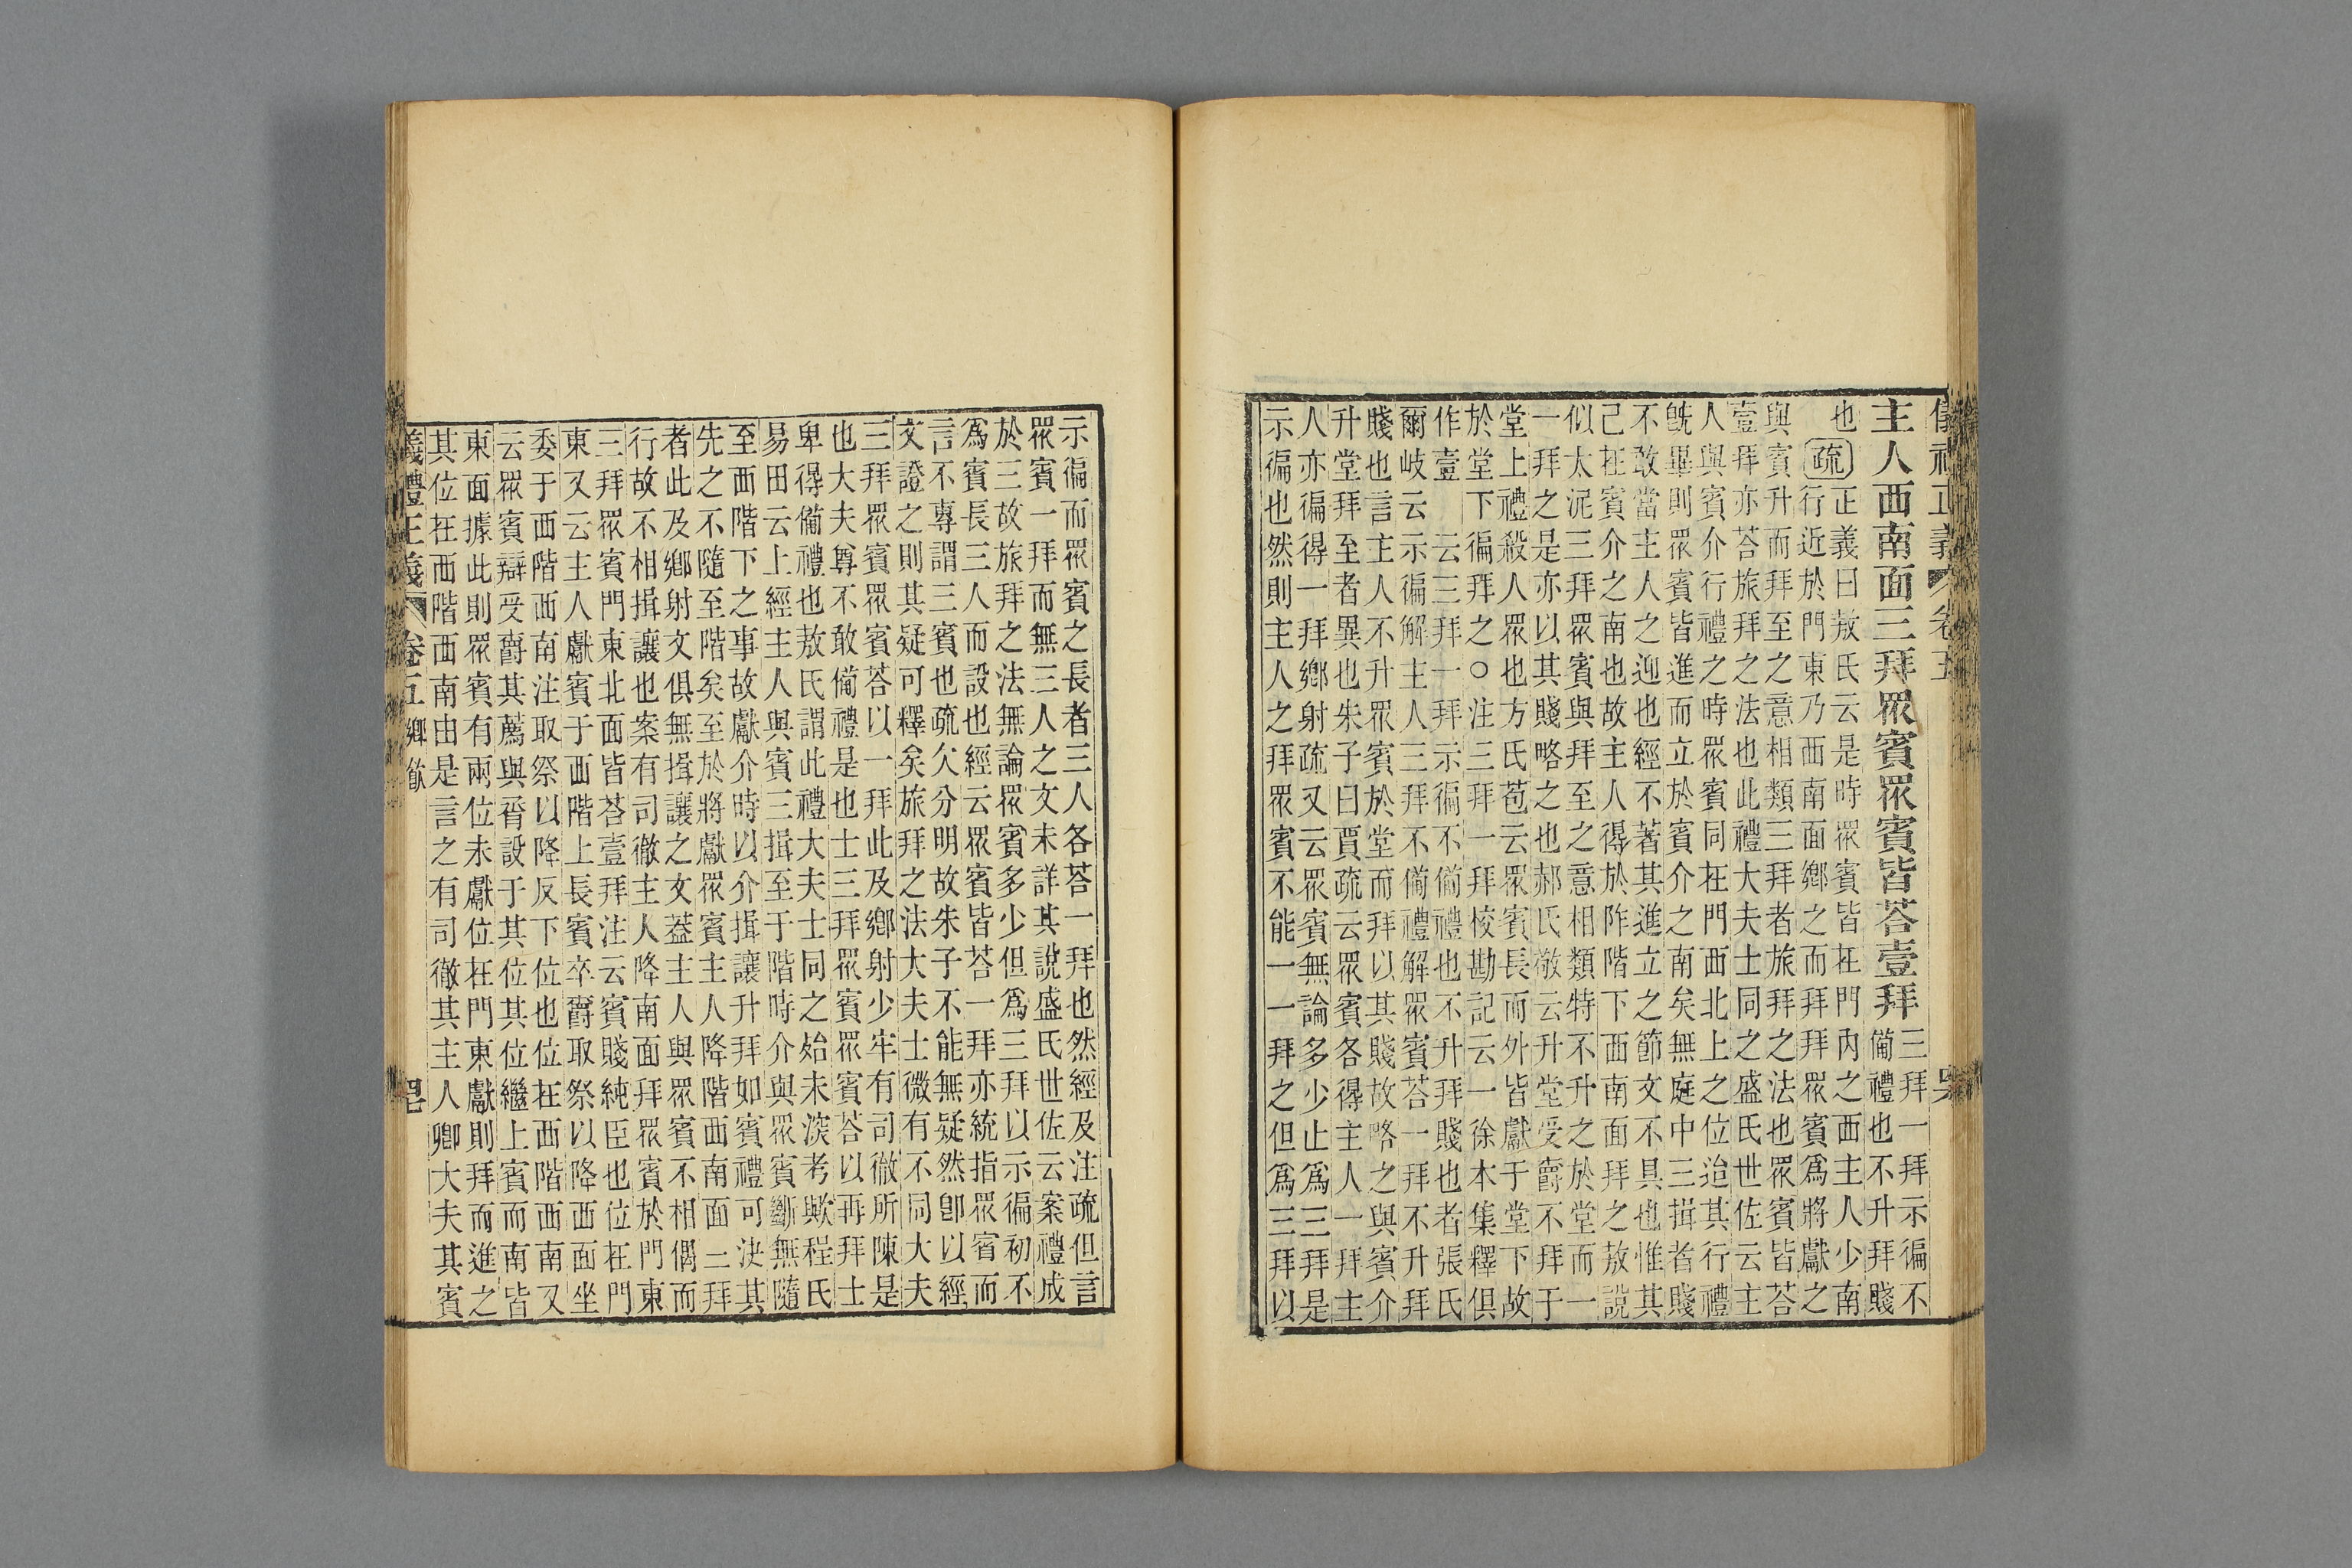 儀禮正義 卷五
主人西南面三拜眾賓眾賓皆荅壹拜
三拜一拜示徧不
備禮也不升拜賤
也
疏
正義曰敖氏云是時眾賓皆在門內之西主人少南
行近於門東乃西南面鄉之而拜拜眾賓爲將獻之
與賓升而拜至之意相類三拜者旅拜之法也眾賓皆荅
壹拜亦荅旅拜之法也此禮大夫士同之盛氏世佐云主
人與賓介行禮之時眾賓同在門西北上之位迨其行禮
旣畢則眾賓皆進而立於賓介之南矣無庭中三揖者賤
不敢當主人之迎也經不著其進立之節文不具也惟其
己在賓介之南也故主人得於阼階下西南面拜之敖說
似太泥三拜眾賓與拜至之意相類特不升之於堂而一
一拜之是亦以其賤略之也郝氏敬云升堂受爵不拜于
堂上禮殺人眾也方氏苞云眾賓長而外皆獻于堂下故
於堂下徧拜之○注三拜一拜校勘記云一徐本集釋俱
作壹 云三拜一拜示徧不備禮也不升拜賤也者張氏
爾岐云示徧解主人三拜不備禮解眾賓荅一拜不升拜
賤也言主人不升眾賓於堂而拜以其賤故略之與賓介
升堂拜至者異也朱子曰賈疏云眾賓各得主人一拜主
人亦徧得一拜鄉射疏又云眾賓無論多少止爲三拜是
示徧也然則主人之拜眾賓不能一一拜之但爲三拜以
示徧而眾賓之長者三人各荅一拜也然經及注疏但言
眾賓一拜而無三人之文未詳其說盛氏世佐云案禮成
於三故旅拜之法無論眾賓多少但爲三拜以示徧初不
爲賓長三人而設也經云眾賓皆荅一拜亦統指眾賓而
言不專謂三賓也疏欠分明故朱子不能無疑然卽以經
文證之則其疑可釋矣旅拜之法大夫士微有不同大夫
三拜眾賓眾賓荅以一拜此及鄉射少牢有司徹所陳是
也大夫尊不敢備禮是也士三拜眾賓眾賓荅以再拜士
卑得備禮也敖氏謂此禮大夫士同之始未深考歟程氏
易田云上經主人與賓三揖至于階時介與眾賓斷無隨
至西階下之事故獻介時以介揖讓升拜如賓禮可決其
先之不隨至階矣至於將獻眾賓主人降階西南面三拜
者此及鄉射文俱無揖讓之文葢主人與眾賓不相偶而
行故不相揖讓也案有司徹主人降南面拜眾賓於門東
三拜眾賓門東北面皆荅壹拜注云賓賤純臣也位在門
東又云主人獻賓于西階上長賓卒爵取祭以降西面坐
委于西階西南注取祭以降反下位也位在西階西南又
云眾賓辯受爵其薦與脀設于其位其位繼上賓而南皆
東面據此則眾賓有兩位未獻位在門東獻則拜而進之
其位在西階西南由是言之有司徹其主人卿大夫其賓
儀禮正義 卷五 鄉飲